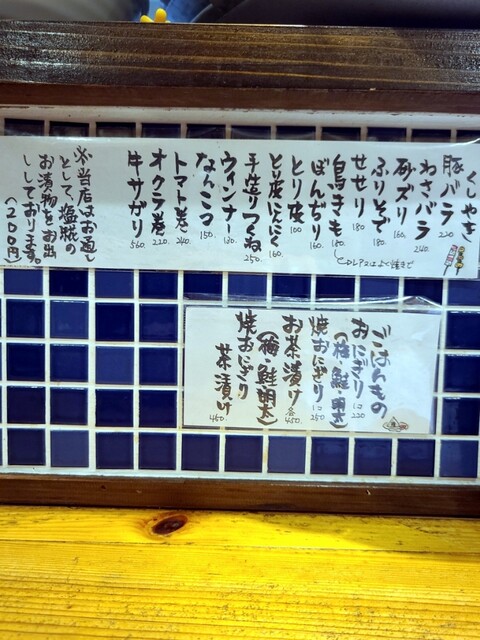 くしやき
豚バラ 220
わさバラ 240
砂ズリ 160
ふりそで 180
せせり 180
鳥きも 180
レアorよく焼きで
ぼんぢり 160
とり皮 100
とり皮にんにく 160
手造りつくね 250
ウィンナー 180
なんこつ 150
トマト巻 240
オクラ巻 220
牛サガリ 560
※当店はお通し
として、塩豚の
お漬物をお出
ししております。
(200円)
ごはんもの
おにぎり 1コ 220
(梅・鮭・明太)
焼おにぎり 1コ 250
お茶漬け 各450
(梅・鮭・明太)
焼おにぎり
茶漬け 450